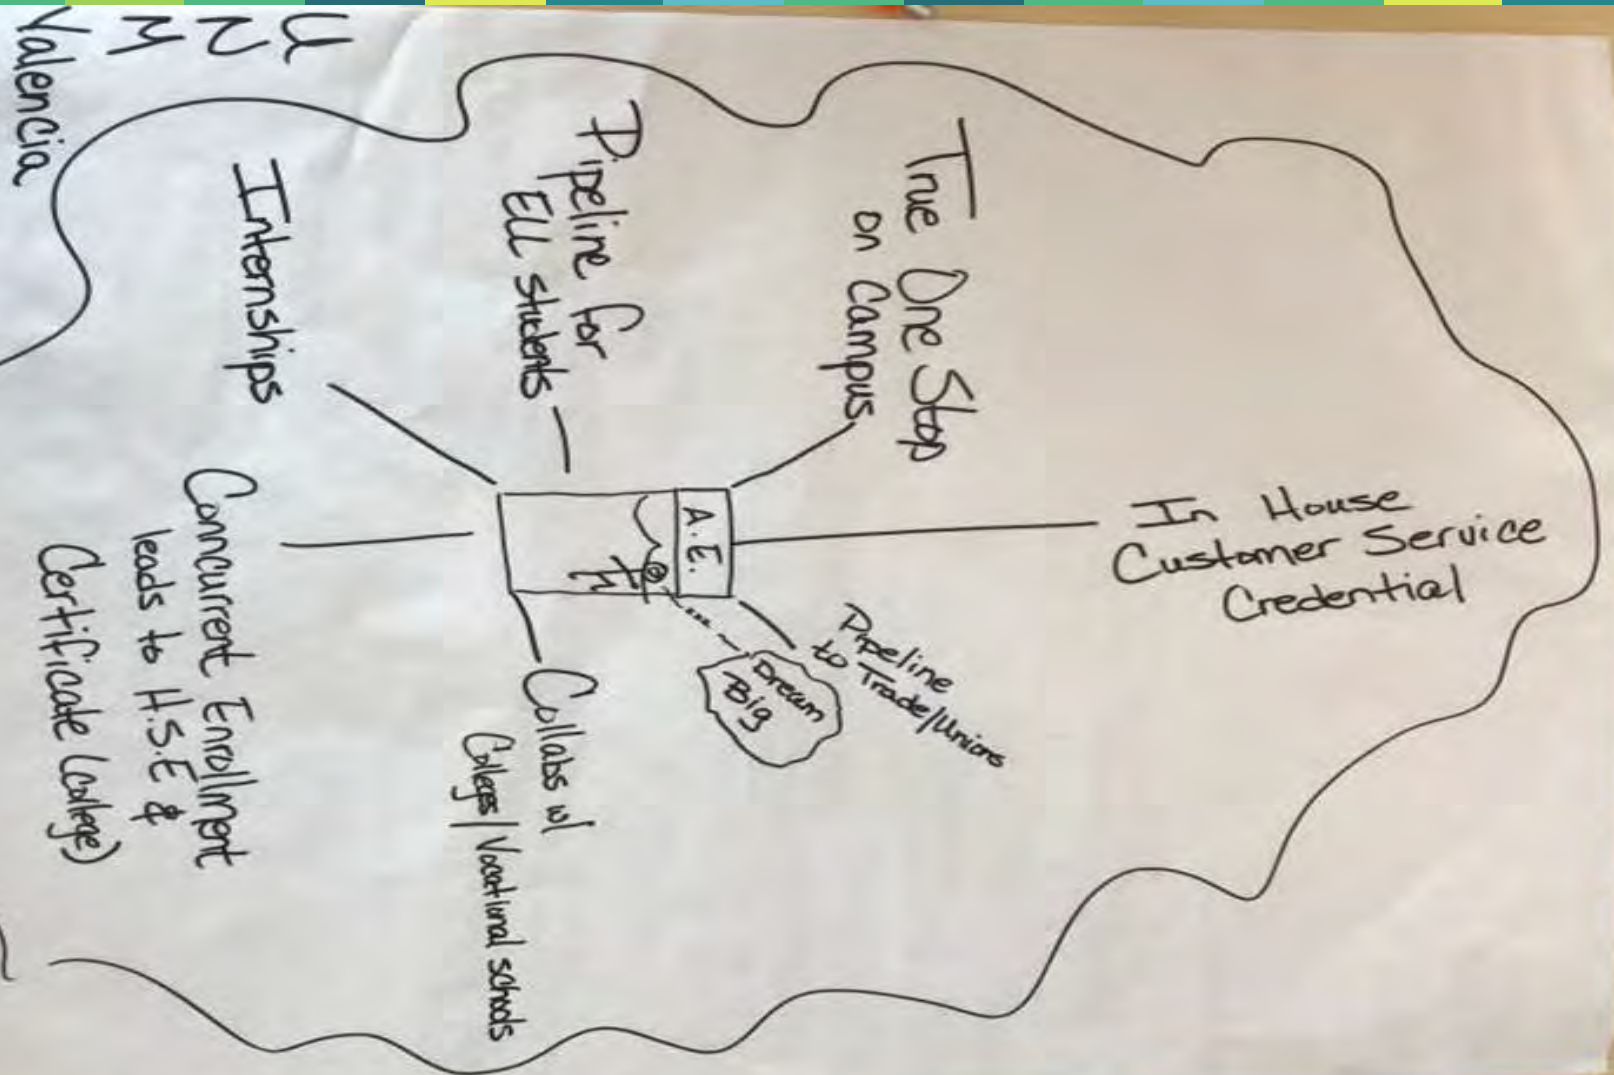 U
N
M
Valencia
True One Stop
on Campus
Pipeline for
ELL students
Internships
In House
Customer Service
Credential
A.E.
Pipeline
to Trade/Unions
Dream
Big
Collabs w/
Colleges/Vocational schools
Conncurrent Enrollment
leads to H.S.E &
Certificate (college)